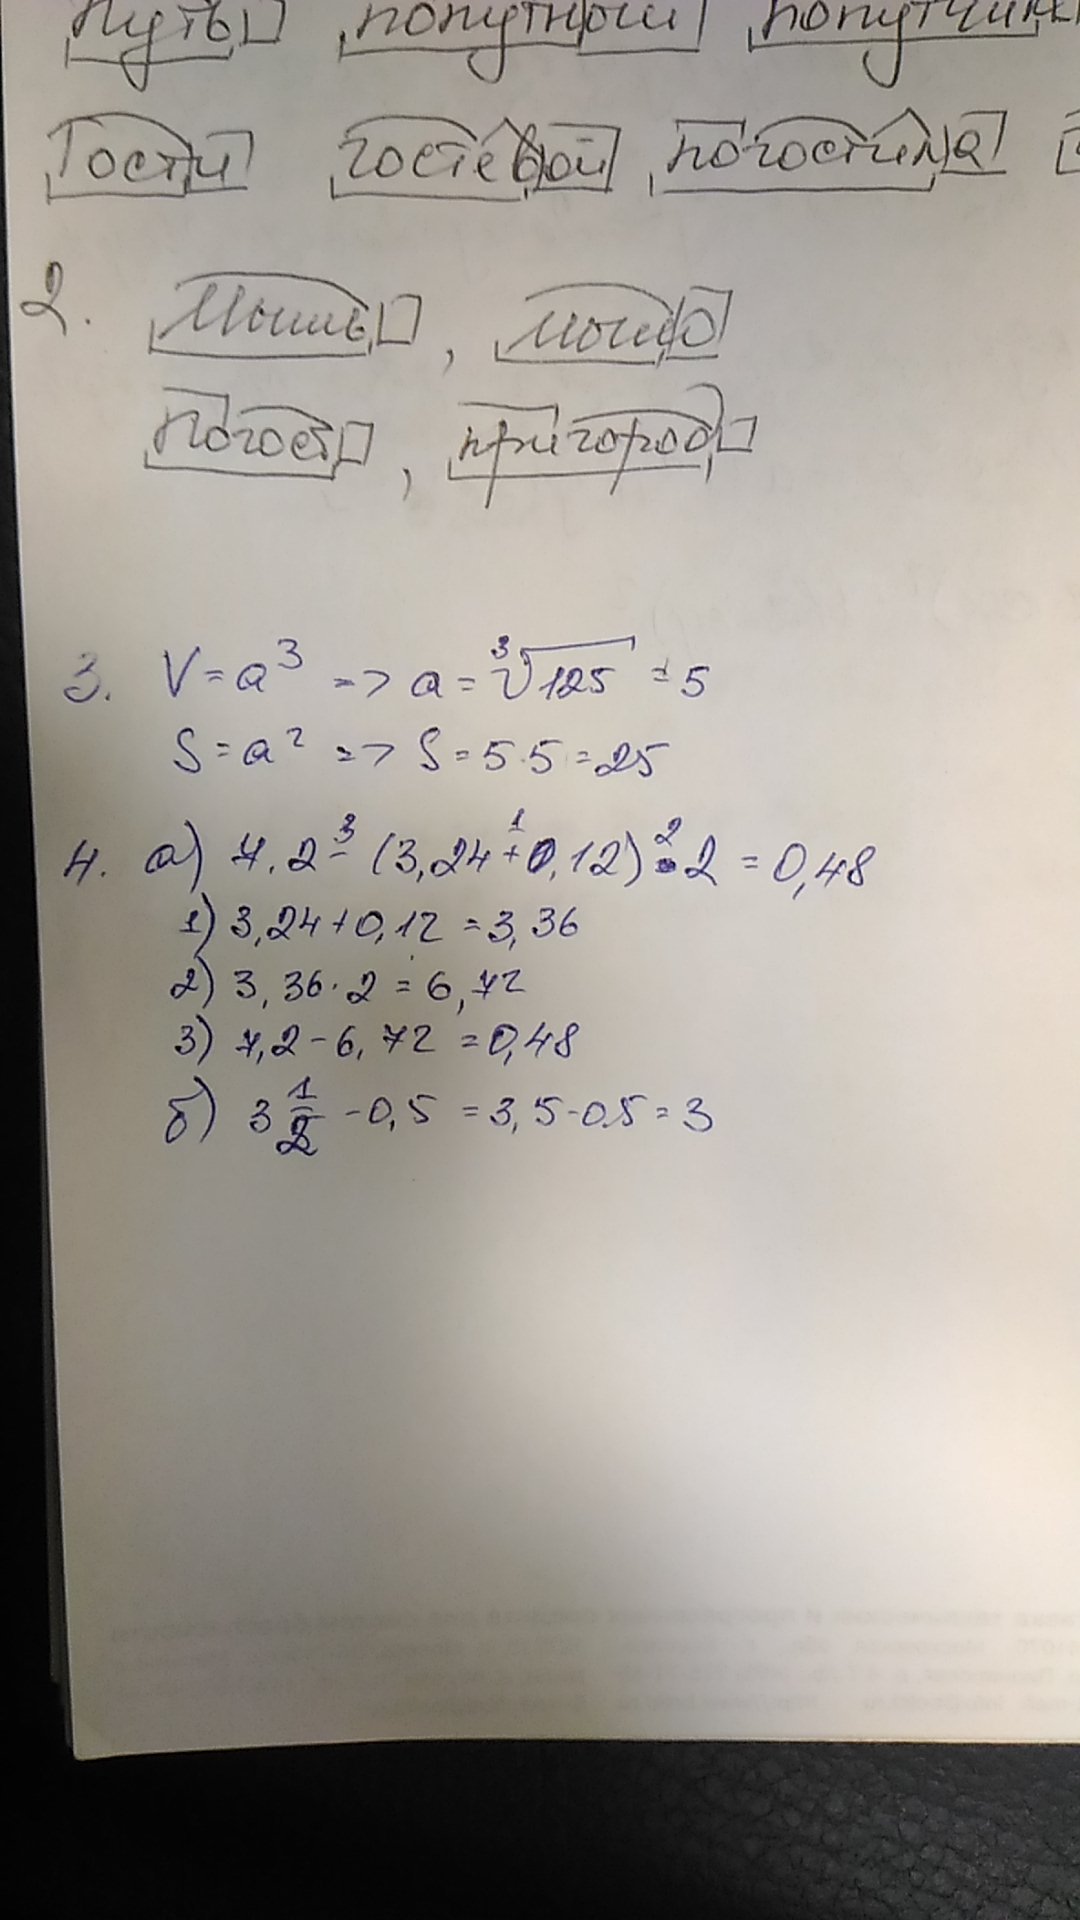 Путь, попутный, попутчик
Гости гостевой погостила
2. Мышь, мыло
Погост, пригород
3. V = a³ => a = ³√125 = 5
S = a² => S = 5·5 = 25
4. а) 7.2 - (3,24 + 0,12) · 2 = 0,48
1) 3,24 + 0,12 = 3,36
2) 3,36 · 2 = 6,72
3) 7,2 - 6,72 = 0,48
б) 3 1/2 - 0,5 = 3,5 - 0.5 = 3